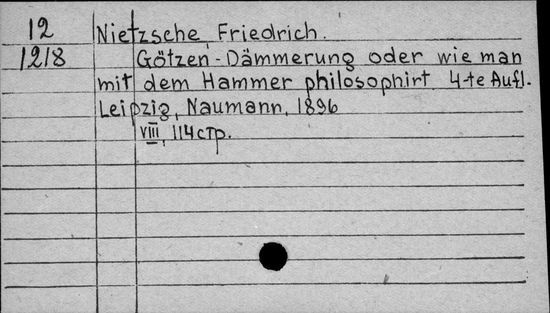 12 Nietzsche, Friedrich.
1218 Götzen-Dämmerung oder wie man
mit dem Hammer philosophirt 4-te Aufl.
Leipzig, Naumann, 1896
VIII, 114 стр.